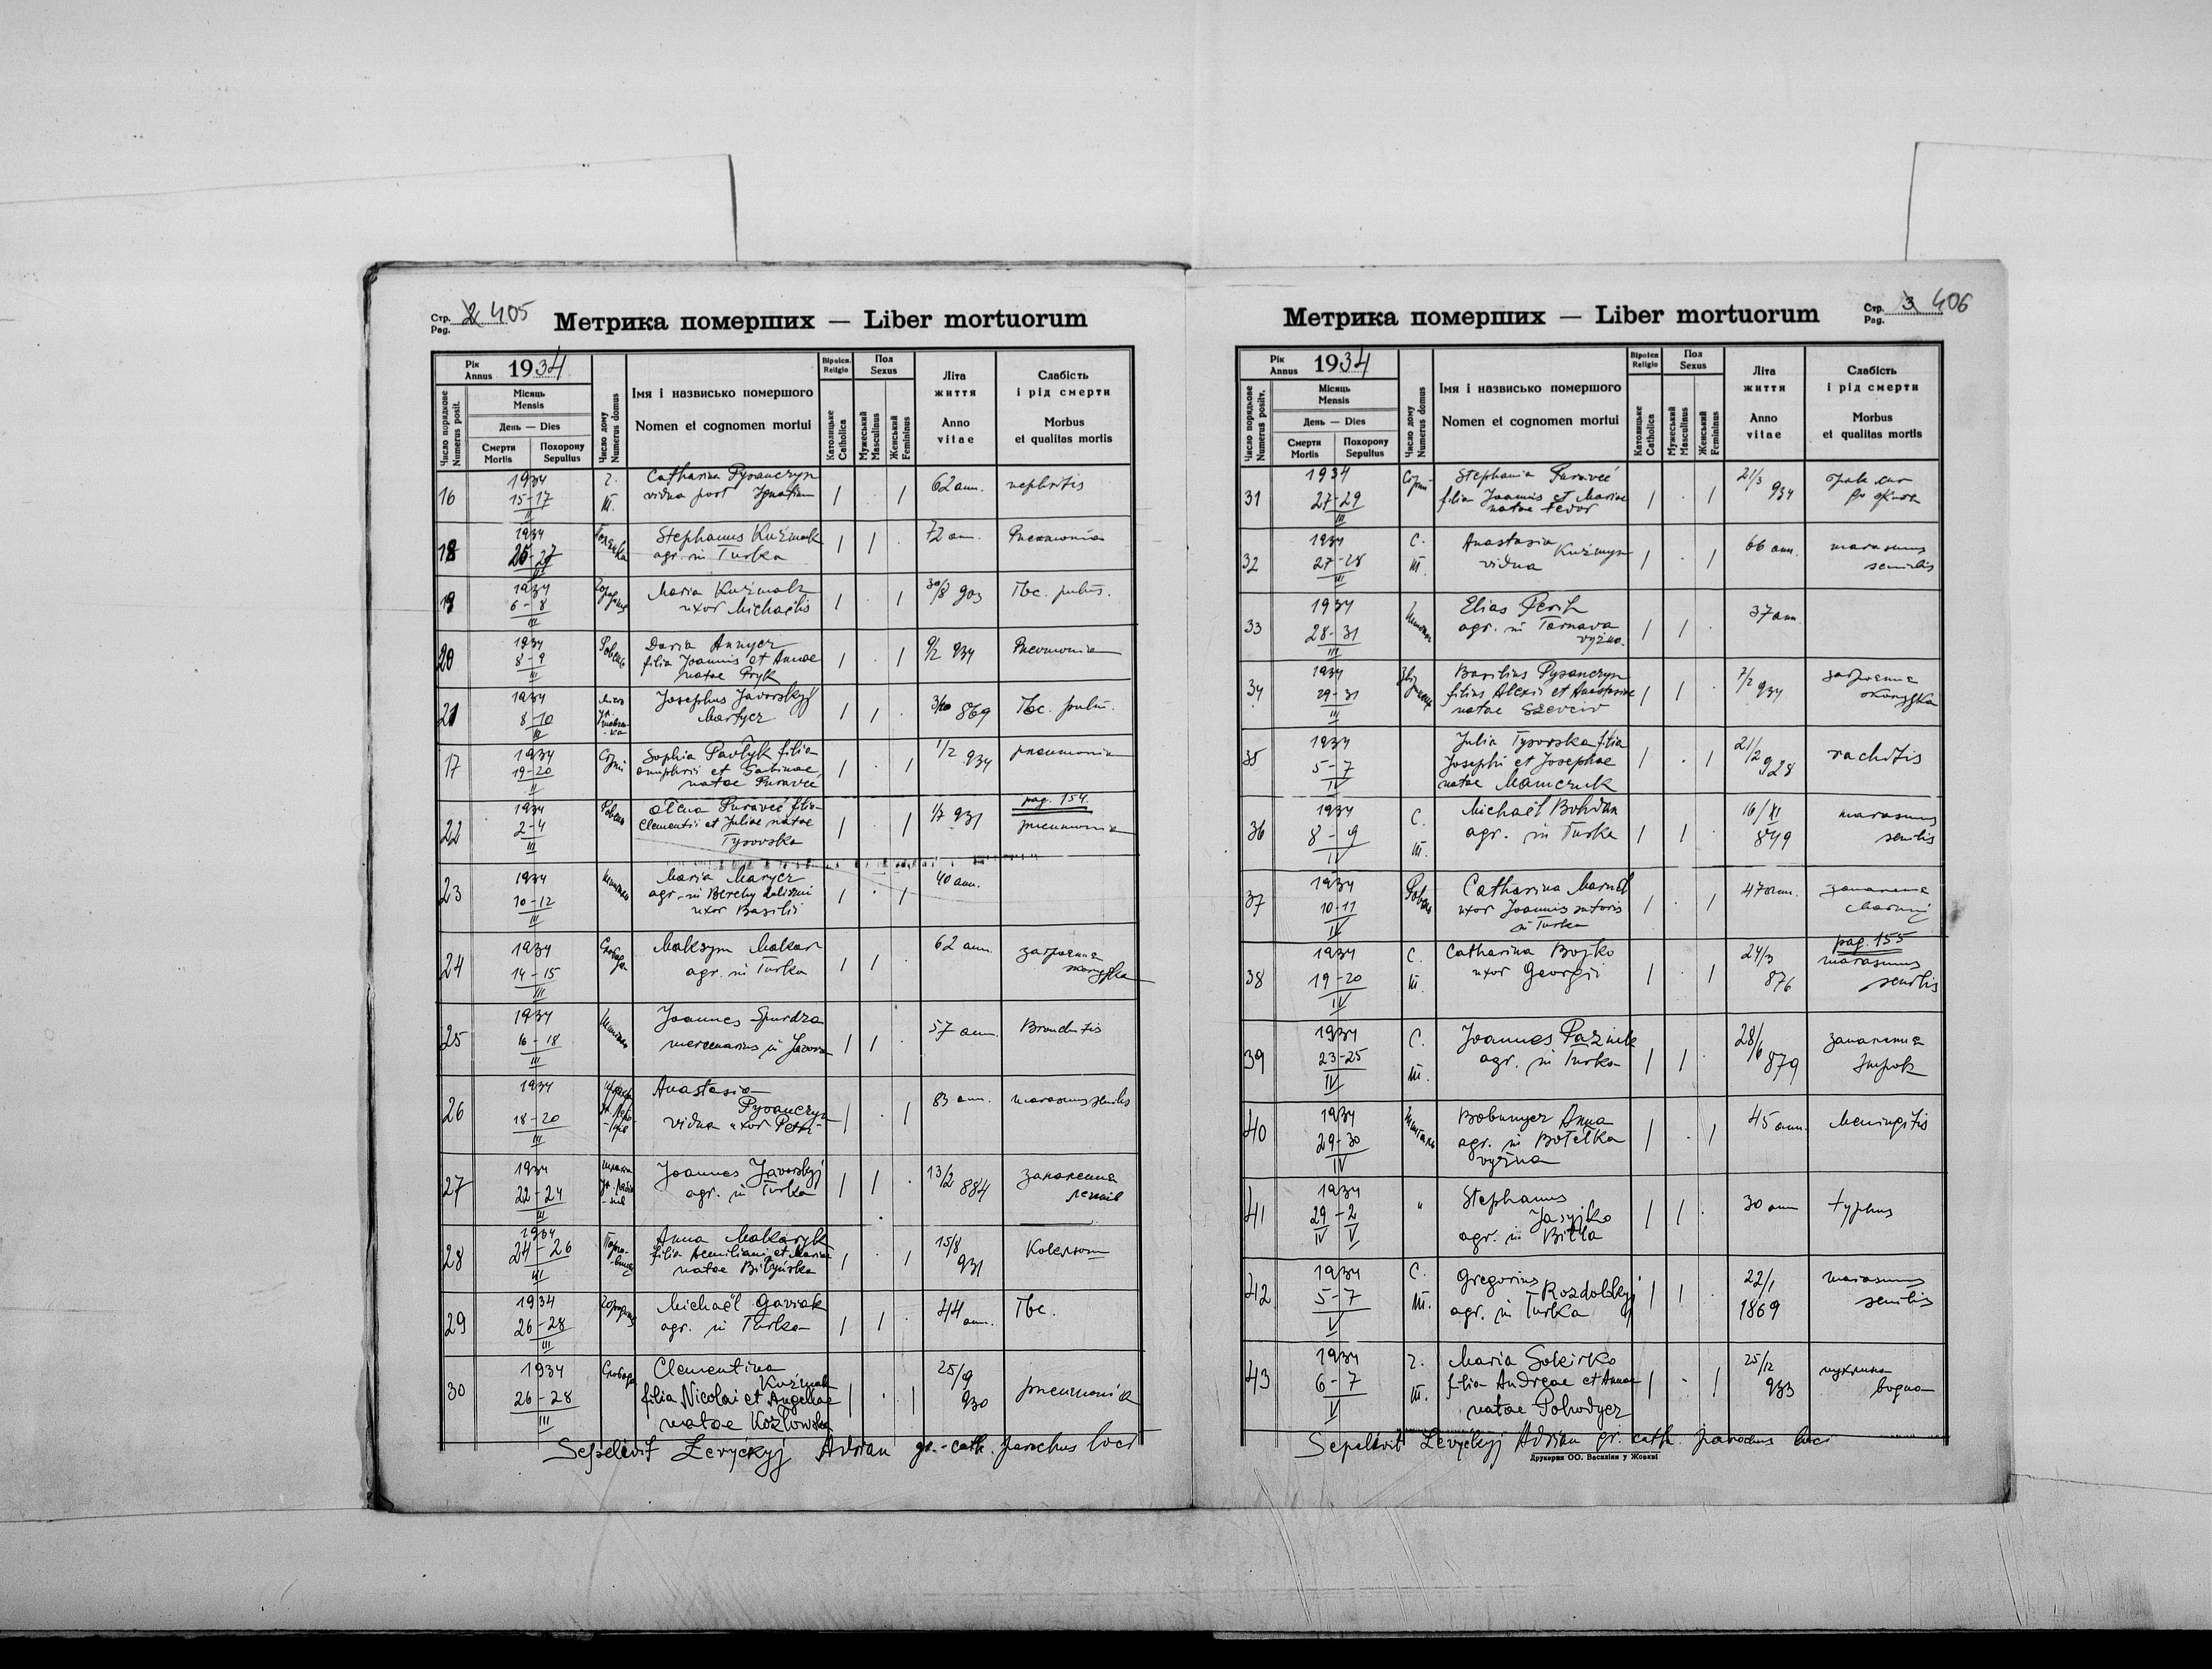 Стр. Pag. 2 405
Метрика померших — Liber mortuorum
Рік Annus 1934
Число порядкове Numerus posit.
Місяць Mensis
День — Dies
Смерти Mortis
Похорону Sepultus
Число дому Numerus domus
Імя і назвисько помершого
Nomen et cognomen mortui
Віроісп. Religio
Католицьке Catholica
Пол Sexus
Мужеський Masculinus
Женський Femininus
Літа життя
Anno vitae
Слабість і рід смерти
Morbus et qualitas mortis
16 1934 15-17 II
2. III.
Catharina Pysanczyn
vidua post Ignatium
62 ann. nephritis
18 1934 25-27
Stephanus Kuźmak
agr. in Turka
72 ann. Pneumonia
19 1934 6-8 III
Maria Kuźmak
uxor Michaëlis
30/8 903 Tbc. pulm.
20 1934 8-9 III
Ровень
Daria Annycz
filia Joannis et Annae
natae Pryk
9/2 934 Pneumonia
21 1934 8-10 III
Josephus Javorskyj
Martycz
869 Tbc. pulm.
17 1934 19-20 II
Sophia Pavlyk filia
Onuphrii et Sabinae
natae Puravec
1/2 934 pneumonia
22 1934 2-4 III
Ровень
Olena Puraveć filia
Clementii et Juliae natae
Tysovska
1/7 931
pag. 154.
pneumonia
23 1934 10-12 III
Maria Marycz
agr. in Berehy dolišni
uxor Basilii
40 ann.
24 1934 14-15 III
Слобода
Maksym Makar
agr. in Turka
62 ann.
25 1934 16-18 III
Joannes Spurdza
mercenarius in Javora
57 ann. Bronchitis
26 1934 18-20 III
Anastasia
Pysanczyn
vidua uxor Petri
83 ann. marasmus senilis
27 1934 22-24 III
Joannes Javorskyj
agr. in Turka
13/2 884 запалення легких
28 1934 24-26 III
Anna Makaryk
filia Aemiliani et Mariae
natae Bilyńska
15/8 931
29 1934 26-28 III
Michaël Gavriak
agr. in Turka
44 ann. Tbc.
30 1934 26-28 III
Слобода
Clementina
Kuźmak
filia Nicolai et Angelicae
natae Kozłowska
25/9 930 pneumonia
Sepelivit Levyćkyj Adrian gr.-cath. parochus loci
Стр. Pag. 3 406
Метрика померших — Liber mortuorum
Рік Annus 1934
Число порядкове Numerus positv.
Місяць Mensis
День — Dies
Смерти Mortis
Похорону Sepultus
Число дому Numerus domus
Імя і назвисько помершого
Nomen et cognomen mortui
Віроісп Religio
Католицьке Catholica
Пол Sexus
Мужеський Masculinus
Женський Femininus
Літа життя
Anno vitae
Слабість і рід смерти
Morbus et qualitas mortis
31 1934 27-29 III
Stephania Puraveć
filia Joannis et Mariae
natae Fedor
21/3 934
32 1934 27-28 III
С. III.
Anastasia Kuźmyn
vidua
66 ann. marasmus senilis
33 1934 28-31 III
Elias Perih
agr. in Tarnava
vyżna
37 ann.
34 1934 29-31 III
Basilius Pysanczyn
filius Alexii et Anastasiae
natae Szevciv
7/2 934
35 1934 5-7 IV
Julia Tysovska filia
Josephi et Josephae
natae Mamczuk
21/2 928 rachitis
36 1934 8-9 IV
С. III.
Michaël Bohdan
agr. in Turka
16/XI 849 marasmus senilis
37 1934 10-11 IV
Catharina
uxor Joannis sutoris
in Turka
47 ann. запалення
38 1934 19-20 IV
С. III.
Catharina Bojko
uxor Georgii
24/3 876
pag. 155
marasmus senilis
39 1934 23-25 IV
С. III.
Joannes Paźniak
agr. in Turka
28/6 879 запалення
40 1934 29-30 IV
Bobunycz Anna
agr. in Botelka
vyżna
45 ann. Meningitis
41 1934 29-2 IV V
"
Stephanus
Jasyjko
agr. in Bitla
30 ann typhus
42 1934 5-7 V
С. III.
Gregorius
Rozdolskyj
agr. in Turka
22/1 1869 marasmus senilis
43 1934 6-7 V
2. III.
Maria Sokirko
filia Andreae et Annae
natae Pohodycz
25/12 933
Sepelivit Levyćkyj Adrian gr. cath. parochus loci
Друкарня ОО. Василіян у Жовкві